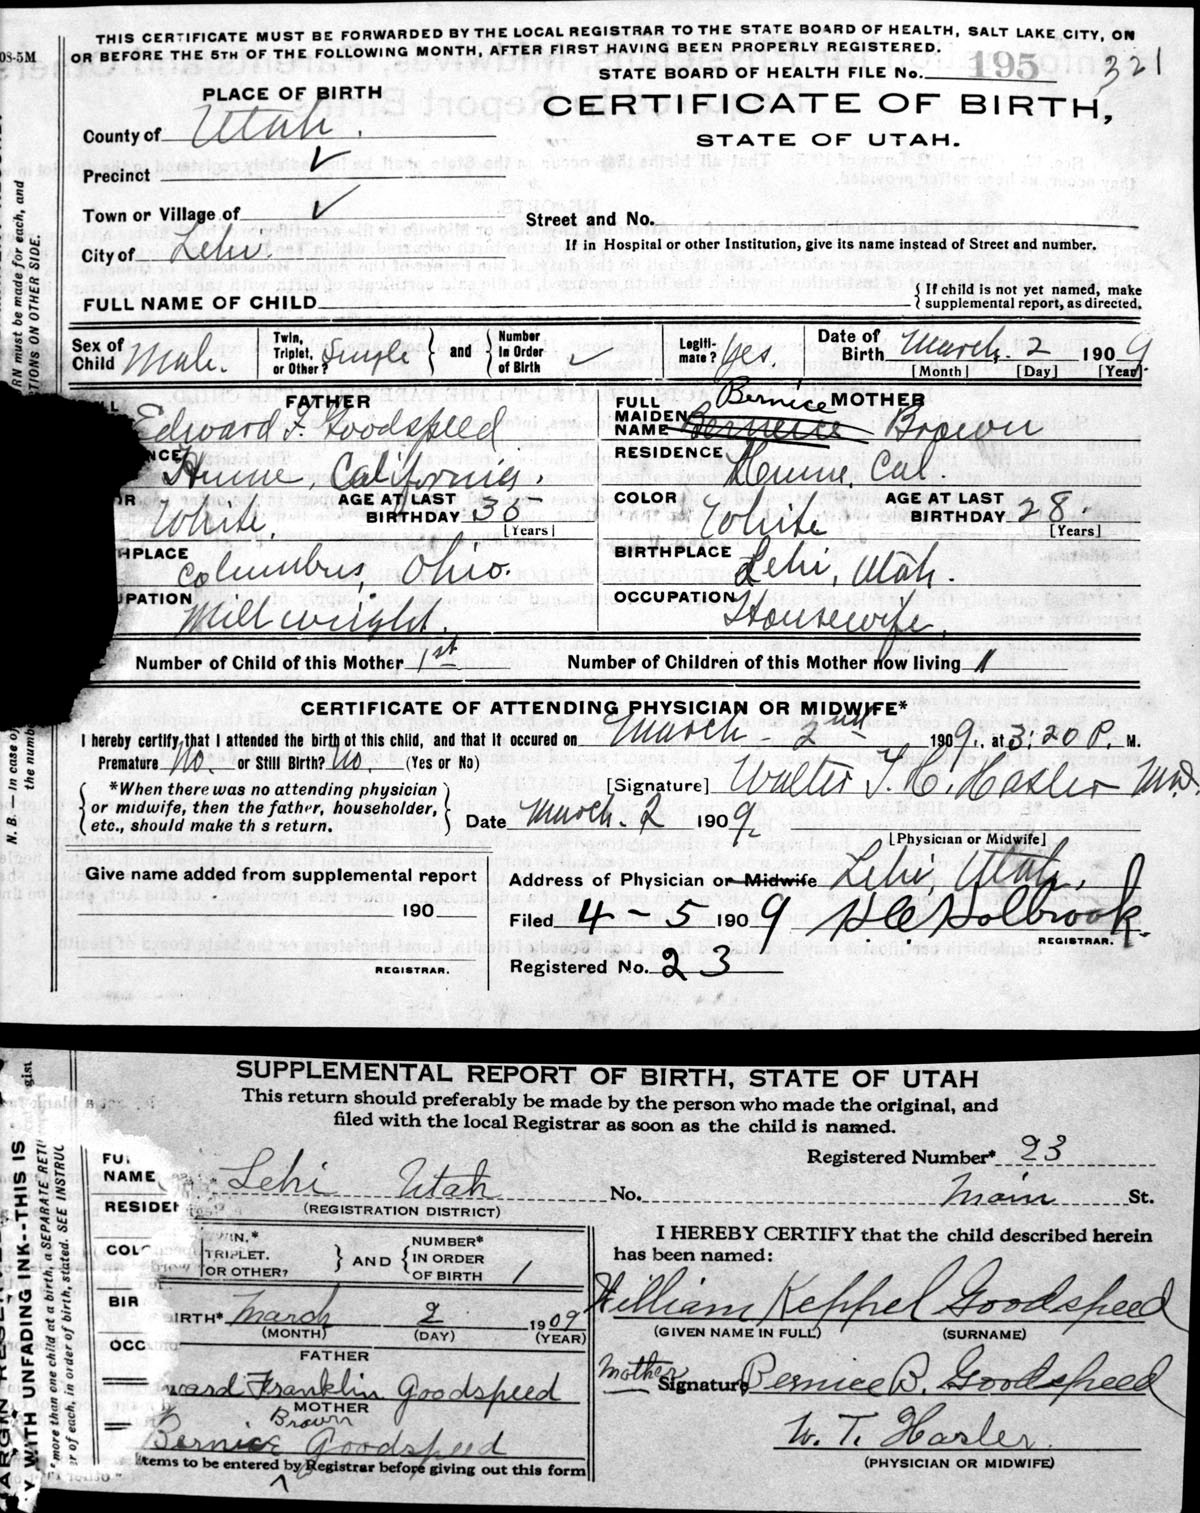 THIS CERTIFICATE MUST BE FORWARDED BY THE LOCAL REGISTRAR TO THE STATE BOARD OF HEALTH, SALT LAKE CITY, ON
OR BEFORE THE 5TH OF THE FOLLOWING MONTH, AFTER FIRST HAVING BEEN PROPERLY REGISTERED.
08-5M
STATE BOARD OF HEALTH FILE No. 195 321
PLACE OF BIRTH
CERTIFICATE OF BIRTH,
STATE OF UTAH.
County of Utah.
Precinct ✓
Town or Village of ✓
Street and No.
City of Lehi.
If in Hospital or other Institution, give its name instead of Street and number.
FULL NAME OF CHILD
{ If child is not yet named, make
supplemental report, as directed.
Sex of Child Male. Twin, Triplet, or Other? Single } and { Number In Order of Birth ✓ Legiti-mate? Yes. Date of Birth March. 2 1909
[Month] [Day] [Year]
FATHER
Edward F. Goodspeed
FULL MAIDEN NAME MOTHER
Bernice Brown
California.
RESIDENCE Cal.
White. AGE AT LAST BIRTHDAY
[Years]
COLOR White AGE AT LAST BIRTHDAY 28.
[Years]
HPLACE Columbus, Ohio.
BIRTHPLACE Lehi, Utah.
UPATION Millwright.
OCCUPATION Housewife.
Number of Child of this Mother 1st
Number of Children of this Mother now living 1
CERTIFICATE OF ATTENDING PHYSICIAN OR MIDWIFE*
I hereby certify that I attended the birth of this child, and that it occured on March - 2nd 1909., at 3:20 P. M.
Premature No. or Still Birth? No. (Yes or No)
*When there was no attending physician
or midwife, then the father, householder,
etc., should make th s return.
[Signature] Walter T. H. Hasler MD.
Date March. 2 1909.
[Physician or Midwife]
Give name added from supplemental report
190
REGISTRAR.
Address of Physician or Midwife Lehi, Utah.
Filed 4-5 1909 Holbrook.
REGISTRAR.
Registered No. 23
RN must be made for each, and
TIONS ON OTHER SIDE.
N. B. — In case of
the numb
SUPPLEMENTAL REPORT OF BIRTH, STATE OF UTAH
This return should preferably be made by the person who made the original, and
filed with the local Registrar as soon as the child is named.
Registered Number* 23
FU
NAME
Lehi Utah No. Main St.
RESIDE
(REGISTRATION DISTRICT)
COL
TRIPLET.
OR OTHER?
} AND { NUMBER*
IN ORDER
OF BIRTH 1
I HEREBY CERTIFY that the child described herein
has been named:
BIR
BIRTH* March 2 1909
(MONTH) (DAY) (YEAR)
William Keppel Goodspeed
(GIVEN NAME IN FULL) (SURNAME)
OCC
FATHER
ward Franklin Goodspeed
Mother Signature Bernice B. Goodspeed
MOTHER
Brown
Bernice Goodspeed
W. T. Hasler.
(PHYSICIAN OR MIDWIFE)
Items to be entered by Registrar before giving out this form
Y WITH UNFADING INK--THIS IS
more than one child at a birth, a SEPARATE RETU
r of each, in order of birth, stated. SEE INSTRUC